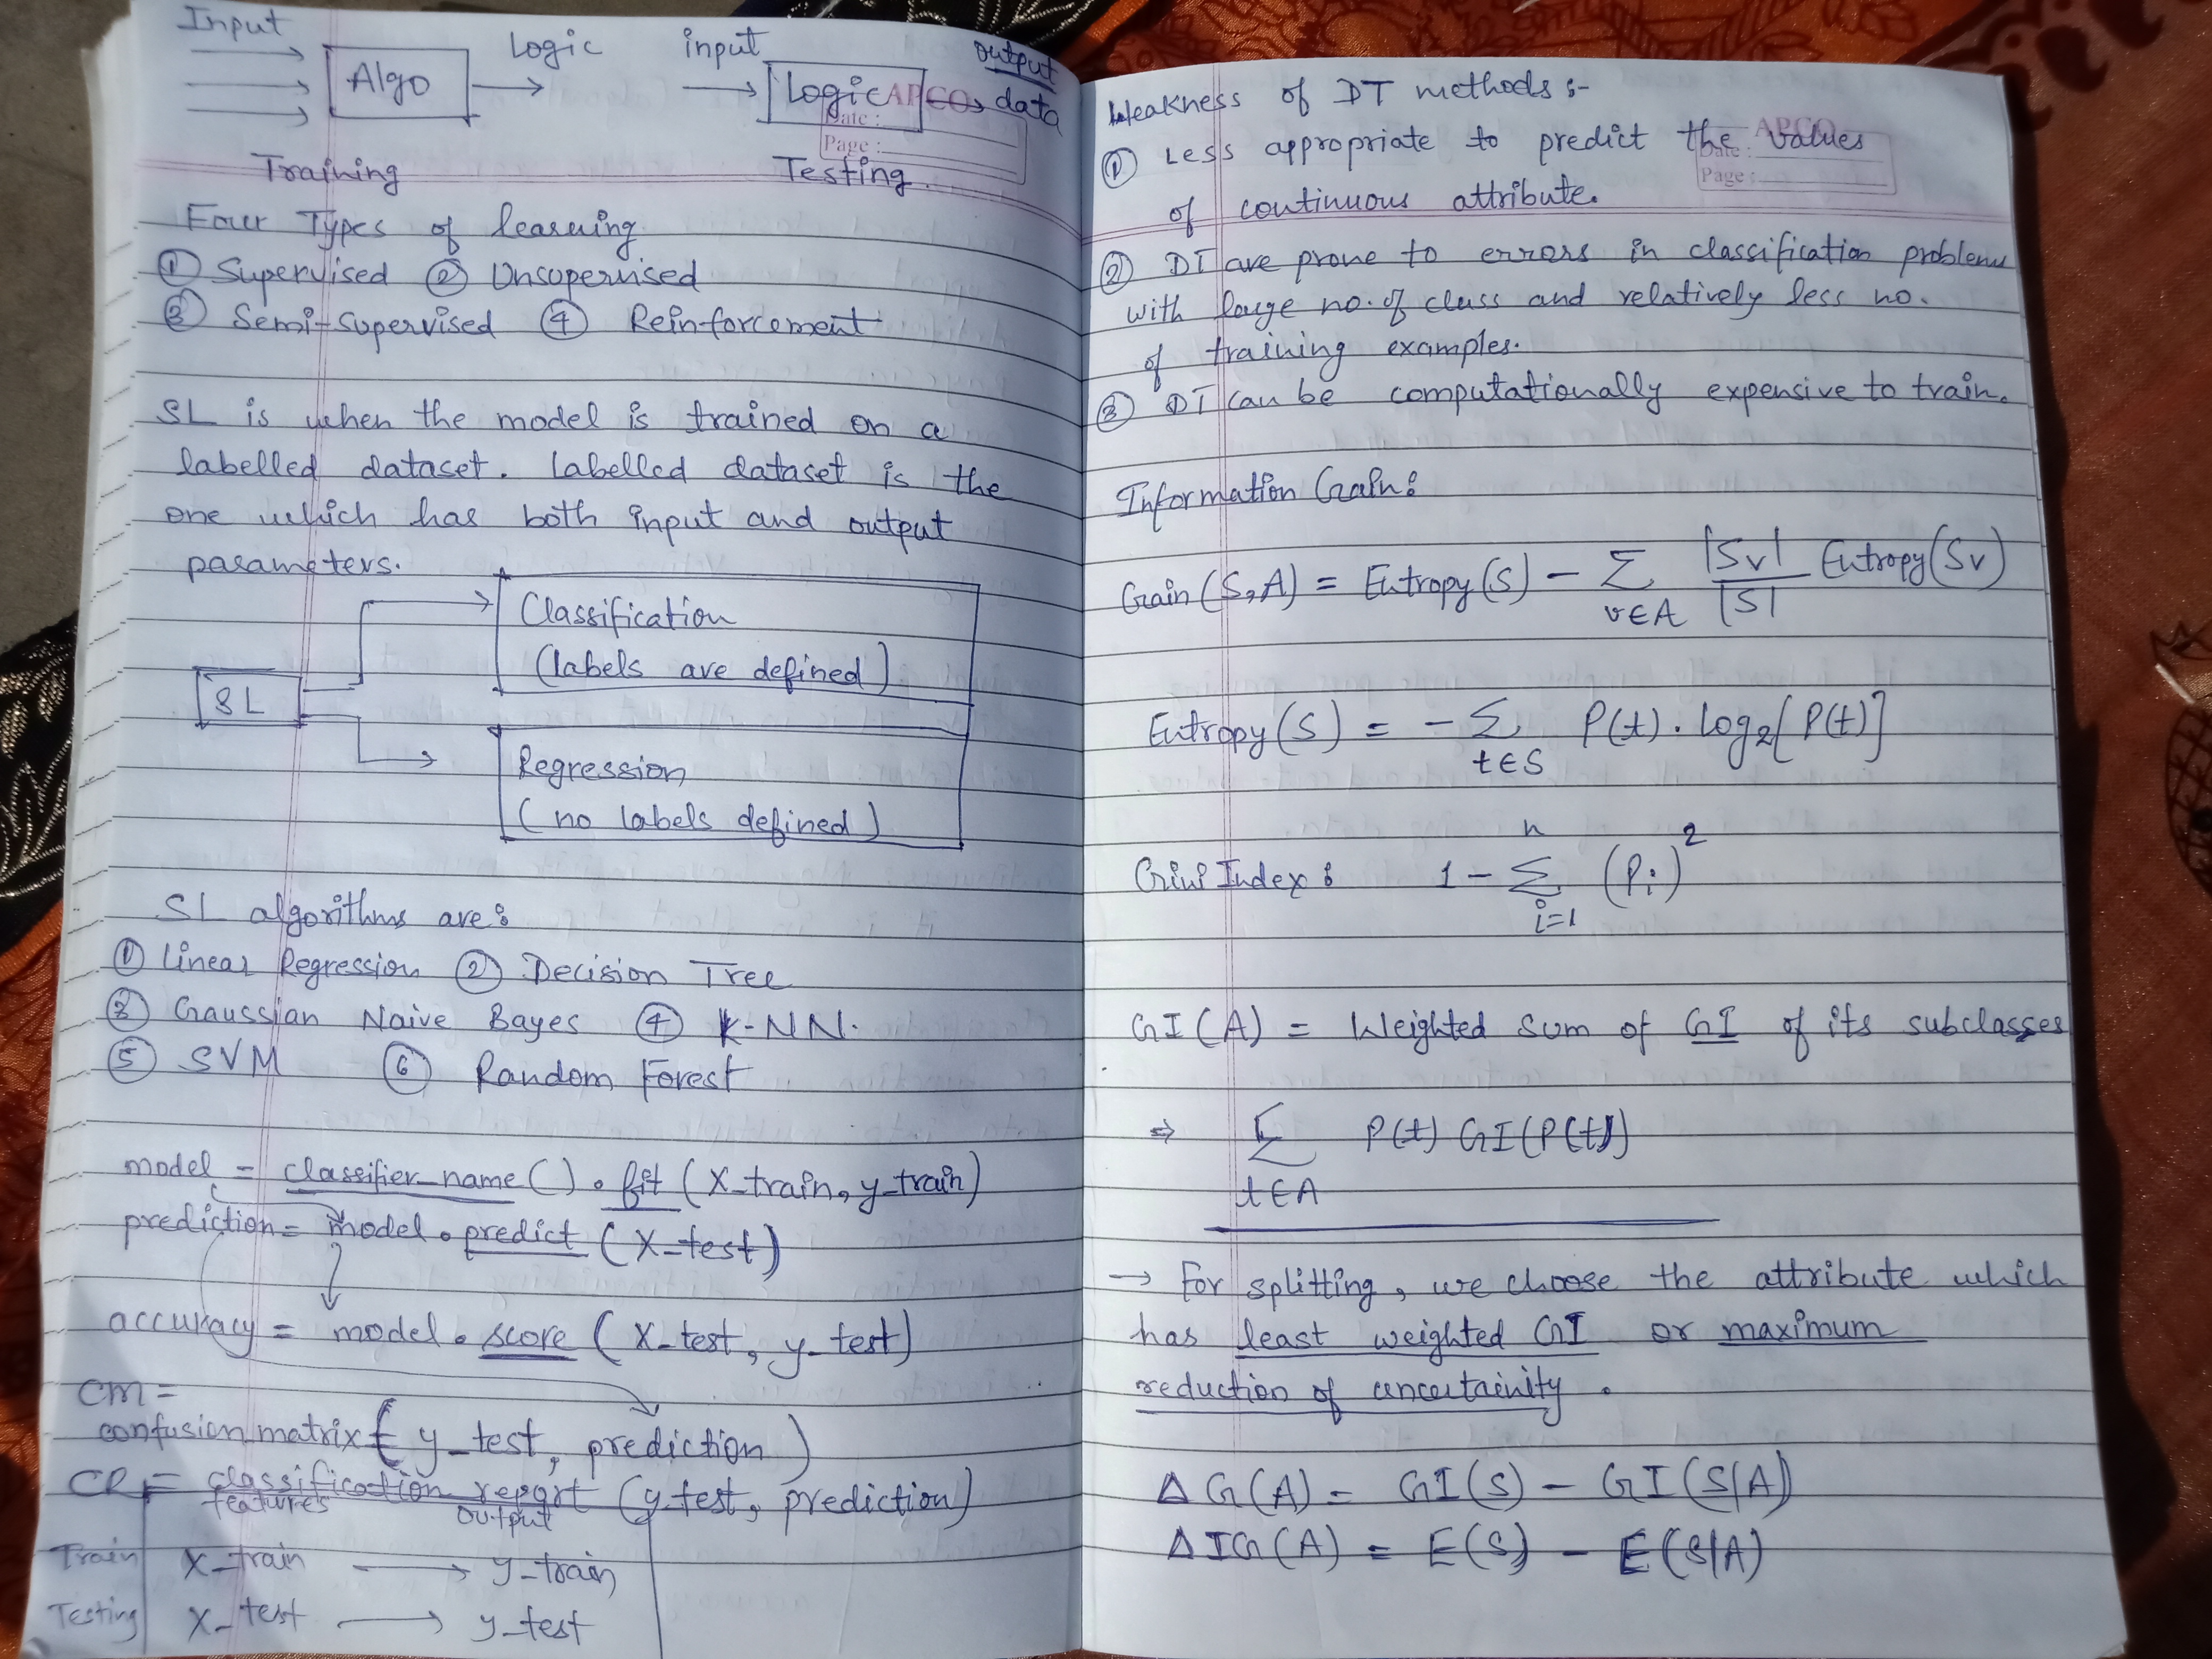 Input
Algo
Logic
input
Logic
output
data
APCO
Date :
Page :
Training
Testing.
Four Types of learning
① Supervised ② Unsupervised
③ Semi-supervised ④ Reinforcement
SL is when the model is trained on a
labelled dataset. Labelled dataset is the
one which has both input and output
parameters.
SL
Classification
(labels are defined)
Regression
(no labels defined)
SL algorithms are:
① Linear Regression ② Decision Tree
③ Gaussian Naive Bayes ④ K-NN.
⑤ SVM ⑥ Random Forest
model = classifier_name().fit(X_train, y_train)
prediction = model.predict(X_test)
accuracy = model.score(X_test, y_test)
CM =
confusion matrix(y_test, prediction)
CR = classification report(y_test, prediction)
features output
Train X_train → y_train
Testing X_test → y_test
Weakness of DT methods :-
APCO
Date :
Page :
① Less appropriate to predict the values
of continuous attribute.
② DT are prone to errors in classification problems
with large no. of class and relatively less no.
of training examples.
③ DT can be computationally expensive to train.
Information Gain:
Gain(S,A) = Entropy(S) - Σ v∈A |Sv|/|S| Entropy(Sv)
Entropy(S) = - Σ t∈S P(t). log₂[P(t)]
Gini Index : 1 - Σ i=1 n (Pi)²
GI(A) = Weighted sum of GI of its subclasses
⇒ Σ t∈A P(t) GI(P(t))
→ For splitting, we choose the attribute which
has least weighted GI or maximum
reduction of uncertainity.
Δ G(A) = GI(S) - GI(S|A)
Δ IG(A) = E(S) - E(S|A)